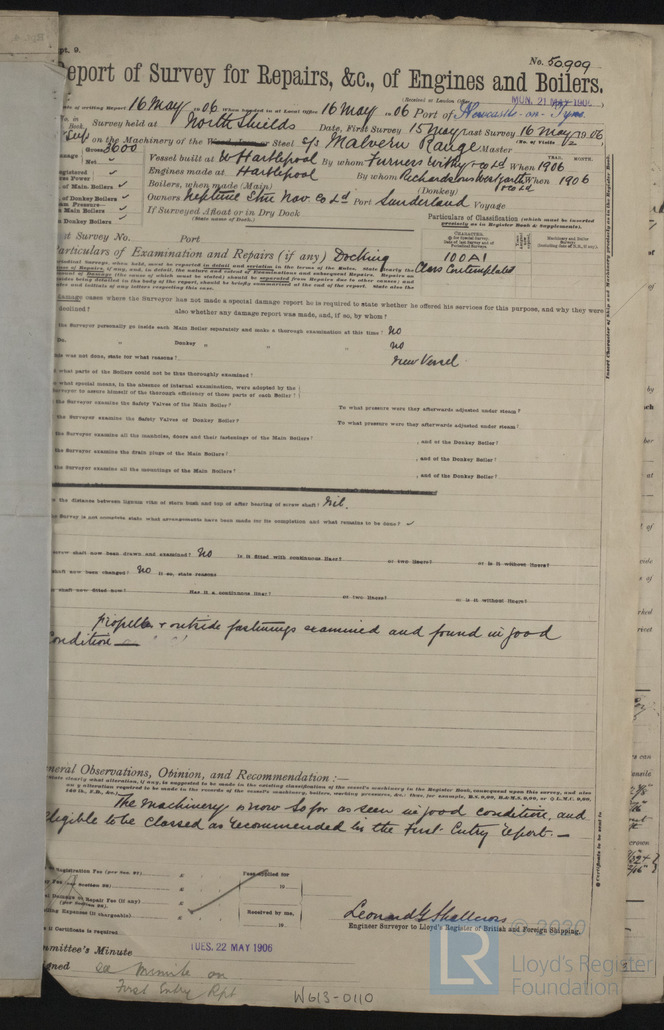 pt. 9.
No. 50909
Report of Survey for Repairs, &c., of Engines and Boilers.
(Received at London Office MON. 21 MAY 1906
of writing Report 16 May 1906 When handed in at Local Office 16 May 1906 Port of Newcastle-on-Tyne.
No. in Book. Survey held at North Shields Date, First Survey 15 May Last Survey 16 May 1906
on the Machinery of the Steel s/s Malvern Range (No. of Visits 2
Gross 3600 Master
Net Vessel built at W Hartlepool By whom Furness Withy & Co Ld When 1906 YEAR. MONTH.
Engines made at Hartlepool By whom Richardsons Westgarth & Co Ld When 1906
of Main Boilers Boilers, when made (Main) (Donkey)
of Donkey Boilers Owners Neptune Stm Nav. Co Ld Port Sunderland Voyage
Main Boilers If Surveyed Afloat or in Dry Dock
Donkey Boilers (State name of Dock.)
Particulars of Classification (which must be inserted precisely as in Register Book & Supplements).
st Survey No. Port
Particulars of Examination and Repairs (if any) Docking
100A1
Class Contemplated
damage cases where the Surveyor has not made a special damage report he is required to state whether he offered his services for this purpose, and why they were
declined? also whether any damage report was made, and, if so, by whom?
the Surveyor personally go inside each Main Boiler separately and make a thorough examination at this time? No
Do. " Donkey " " " No
this was not done, state for what reasons? New Vessel
what parts of the Boilers could not be thus thoroughly examined?
what special means, in the absence of internal examination, were adopted by the
Surveyor to assure himself of the thorough efficiency of those parts of each Boiler?
the Surveyor examine the Safety Valves of the Main Boiler? To what pressure were they afterwards adjusted under steam?
the Surveyor examine the Safety Valves of Donkey Boiler? To what pressure were they afterwards adjusted under steam?
the Surveyor examine all the manholes, doors and their fastenings of the Main Boilers? , and of the Donkey Boiler?
the Surveyor examine the drain plugs of the Main Boilers? , and of the Donkey Boiler?
the Surveyor examine all the mountings of the Main Boilers? , and of the Donkey Boiler?
the distance between lignum vitæ of stern bush and top of after bearing of screw shaft? Nil.
the Survey is not complete state what arrangements have been made for its completion and what remains to be done?
screw shaft now been drawn and examined? No Is it fitted with continuous liner? or two liners? or is it without liners?
shaft now been changed? No If so, state reasons
shaft now fitted new? Has it a continuous liner? or two liners? or is it without liners?
Propeller & outside fastenings examined and found in good
Condition
General Observations, Opinion, and Recommendation:—
The Machinery is now so far as seen in good condition, and
eligible to be classed as recommended in the First Entry report.—
Registration Fee (per Sec. 27) £
Fees applied for
19
Damage or Repair Fee (if any) £
(per Section 28)
Travelling Expenses (if chargeable) £
Received by me,
19
if Certificate is required
Leonard G Shallcross
Engineer Surveyor to Lloyd's Register of British and Foreign Shipping.
Committee's Minute TUES. 22 MAY 1906
Assigned See Minute on
First Entry Rpt
W613-0110
© 2020
LR
Lloyd's Register
Foundation
Insert Character of Ship and Machinery precisely as in the Register Book.
Certificate to be sent to